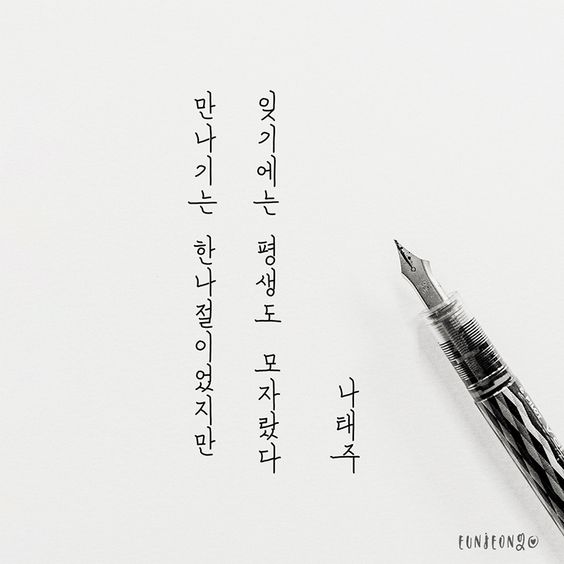 만나기는 한나절이었지만
잊기에는 평생도 모자랐다
나태주
EUNJEONG